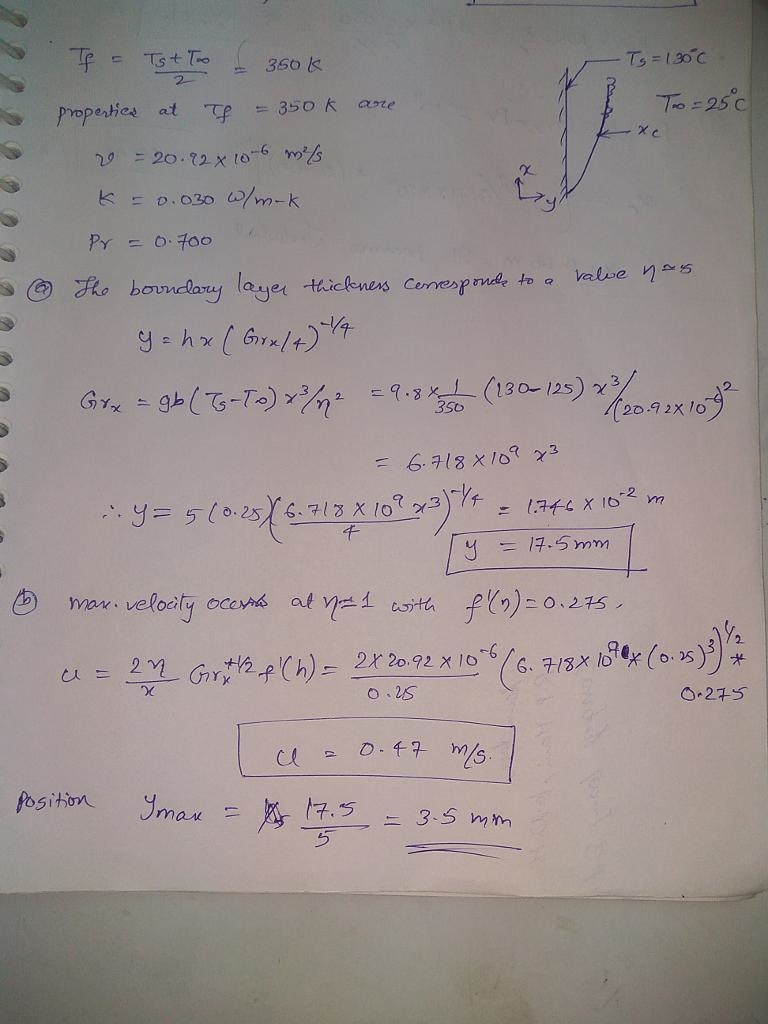 Tf = Ts + T∞ / 2 = 350 K
Ts = 130°C
T∞ = 25°C
xc
x
y
properties at Tf = 350 K are
ν = 20.92 x 10^-6 m²/s
K = 0.030 W/m-K
Pr = 0.700
(a) The boundary layer thickness corresponds to a value η≈5
y = hx (Grx/4)^-1/4
Grx = gb(Ts-T∞) x³/η² = 9.8 x 1/350 (130-125) x³/(20.92x10^-6)²
= 6.718 x 10^9 x³
∴ y = 5 (0.25)(6.718 x 10^9 x³ / 4)^-1/4 = 1.746 x 10^-2 m
y = 17.5mm
(b) max. velocity occurs at η≈1 with f'(η) = 0.275,
u = 2η/x Grx^+1/2 f'(h) = 2 x 20.92 x 10^-6 / 0.25 (6.718 x 10^9 x (0.25)³)^1/2 * 0.275
u = 0.47 m/s.
Position ymax = 17.5 / 5 = 3.5 mm